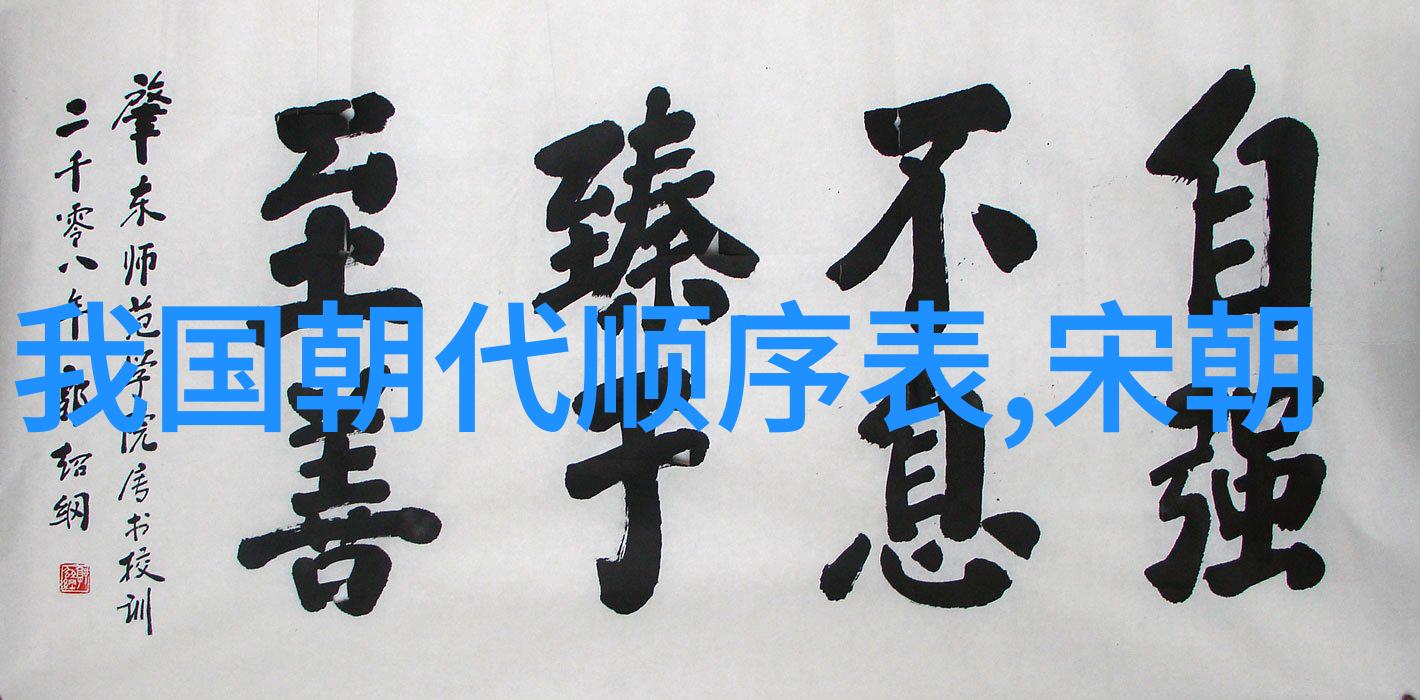 我国朝代顺序表,宋朝
自强
不息
臻于
至善
肇东师范学院书校训
二千零八年郭绍纲